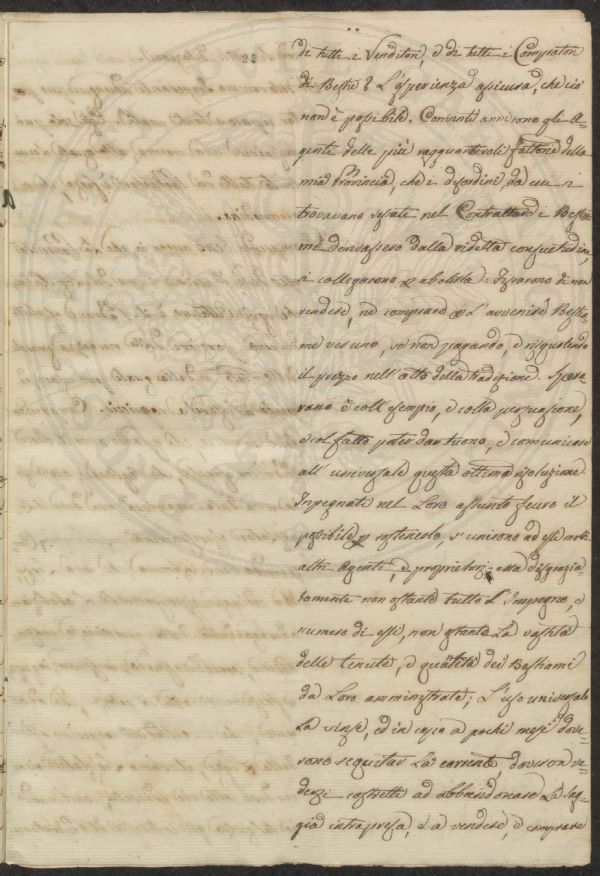 23
di tutti i Venditori, e di tutti i Compratori
di Bestie? L'esperienza assicura, che ciò
non è possibile. Convinti anni sono gli A-
genti delle più ragguardevoli fattorie della
mia Provincia, che i disordini, da cui si
trovavano vessati nel Contrattare i Bestia-
me derivassero dalla ridetta consuetudine,
si collegorono p abolirla. Fissorono di non
vendere, nè comprare p l'avvenire Bestia-
me veruno, se non pagando, e risquotendo
il prezzo nell'atto della tradizione. Spera-
vano e coll'esempio, e colla persuasione,
e col fatto poter dar tuono, e comunicare
all'universale questa ottima risoluzione.
Impegnati nel Loro assunto fecero il
possibile p sostenerlo, s'unirono ad essi molti
altri Agenti, e proprietarj; ma disgrazia-
tamente non ostante tutto l'Impegno, e
numero di essi, non ostante La vastità
delle tenute, e quantità dei Bestiami
da Loro amministrate; L'uso universale
La vinse, ed in capo a pochi mesi dove-
rono seguitar La corrente, doveron ve-
dersi costretti ad abbandonare La sag-
gia intrapresa, e a vendere, e comprare